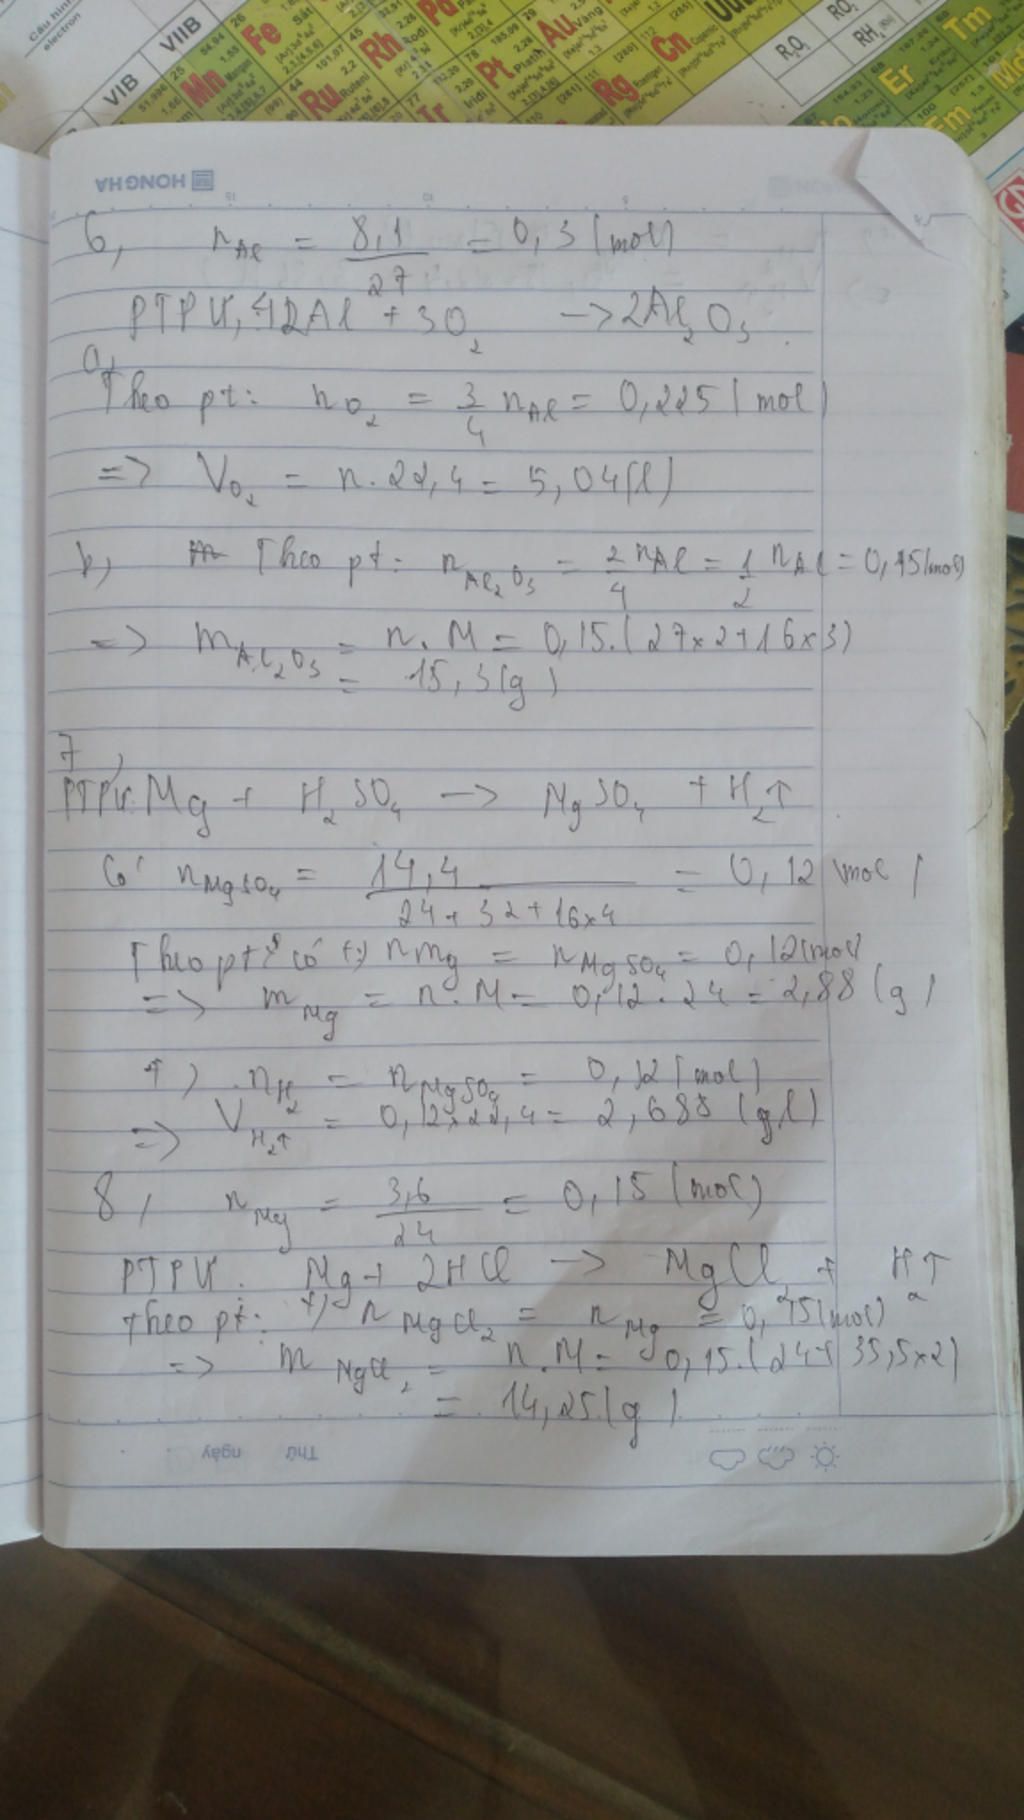 VIIB
VIB
Mn
Fe
Ru
Rh
Ir
Pt
Au
Rg
Cn
R₂O₅
RO₂
RH₄
Er
Tm
Fm
HONG HA
6, nAl = 8,1/27 = 0,3 (mol)
PTPƯ, 4Al + 3O₂ -> 2Al₂O₃
a,
Theo pt: nO₂ = 3/4 nAl = 0,225 (mol)
=> VO₂ = n.22,4 = 5,04 (l)
b, Theo pt: nAl₂O₃ = 2/4 nAl = 1/2 nAl = 0,15 (mol)
=> mAl₂O₃ = n.M = 0,15.(27×2+16×3)
= 15,3 (g)
7,
PTPƯ: Mg + H₂SO₄ -> MgSO₄ + H₂↑
Có nMgSO₄ = 14,4/(24+32+16×4) = 0,12 mol
Theo pt có +) nMg = nMgSO₄ = 0,12 (mol)
=> mMg = n.M = 0,12.24 = 2,88 (g)
+) nH₂ = nMgSO₄ = 0,12 (mol)
=> VH₂↑ = 0,12×22,4 = 2,688 (l)
8, nMg = 3,6/24 = 0,15 (mol)
PTPƯ: Mg + 2HCl -> MgCl₂ + H₂↑
Theo pt: +) nMgCl₂ = nMg = 0,15 (mol)
=> mMgCl₂ = n.M = 0,15.(24+35,5×2)
= 14,25 (g)
Thứ ngày